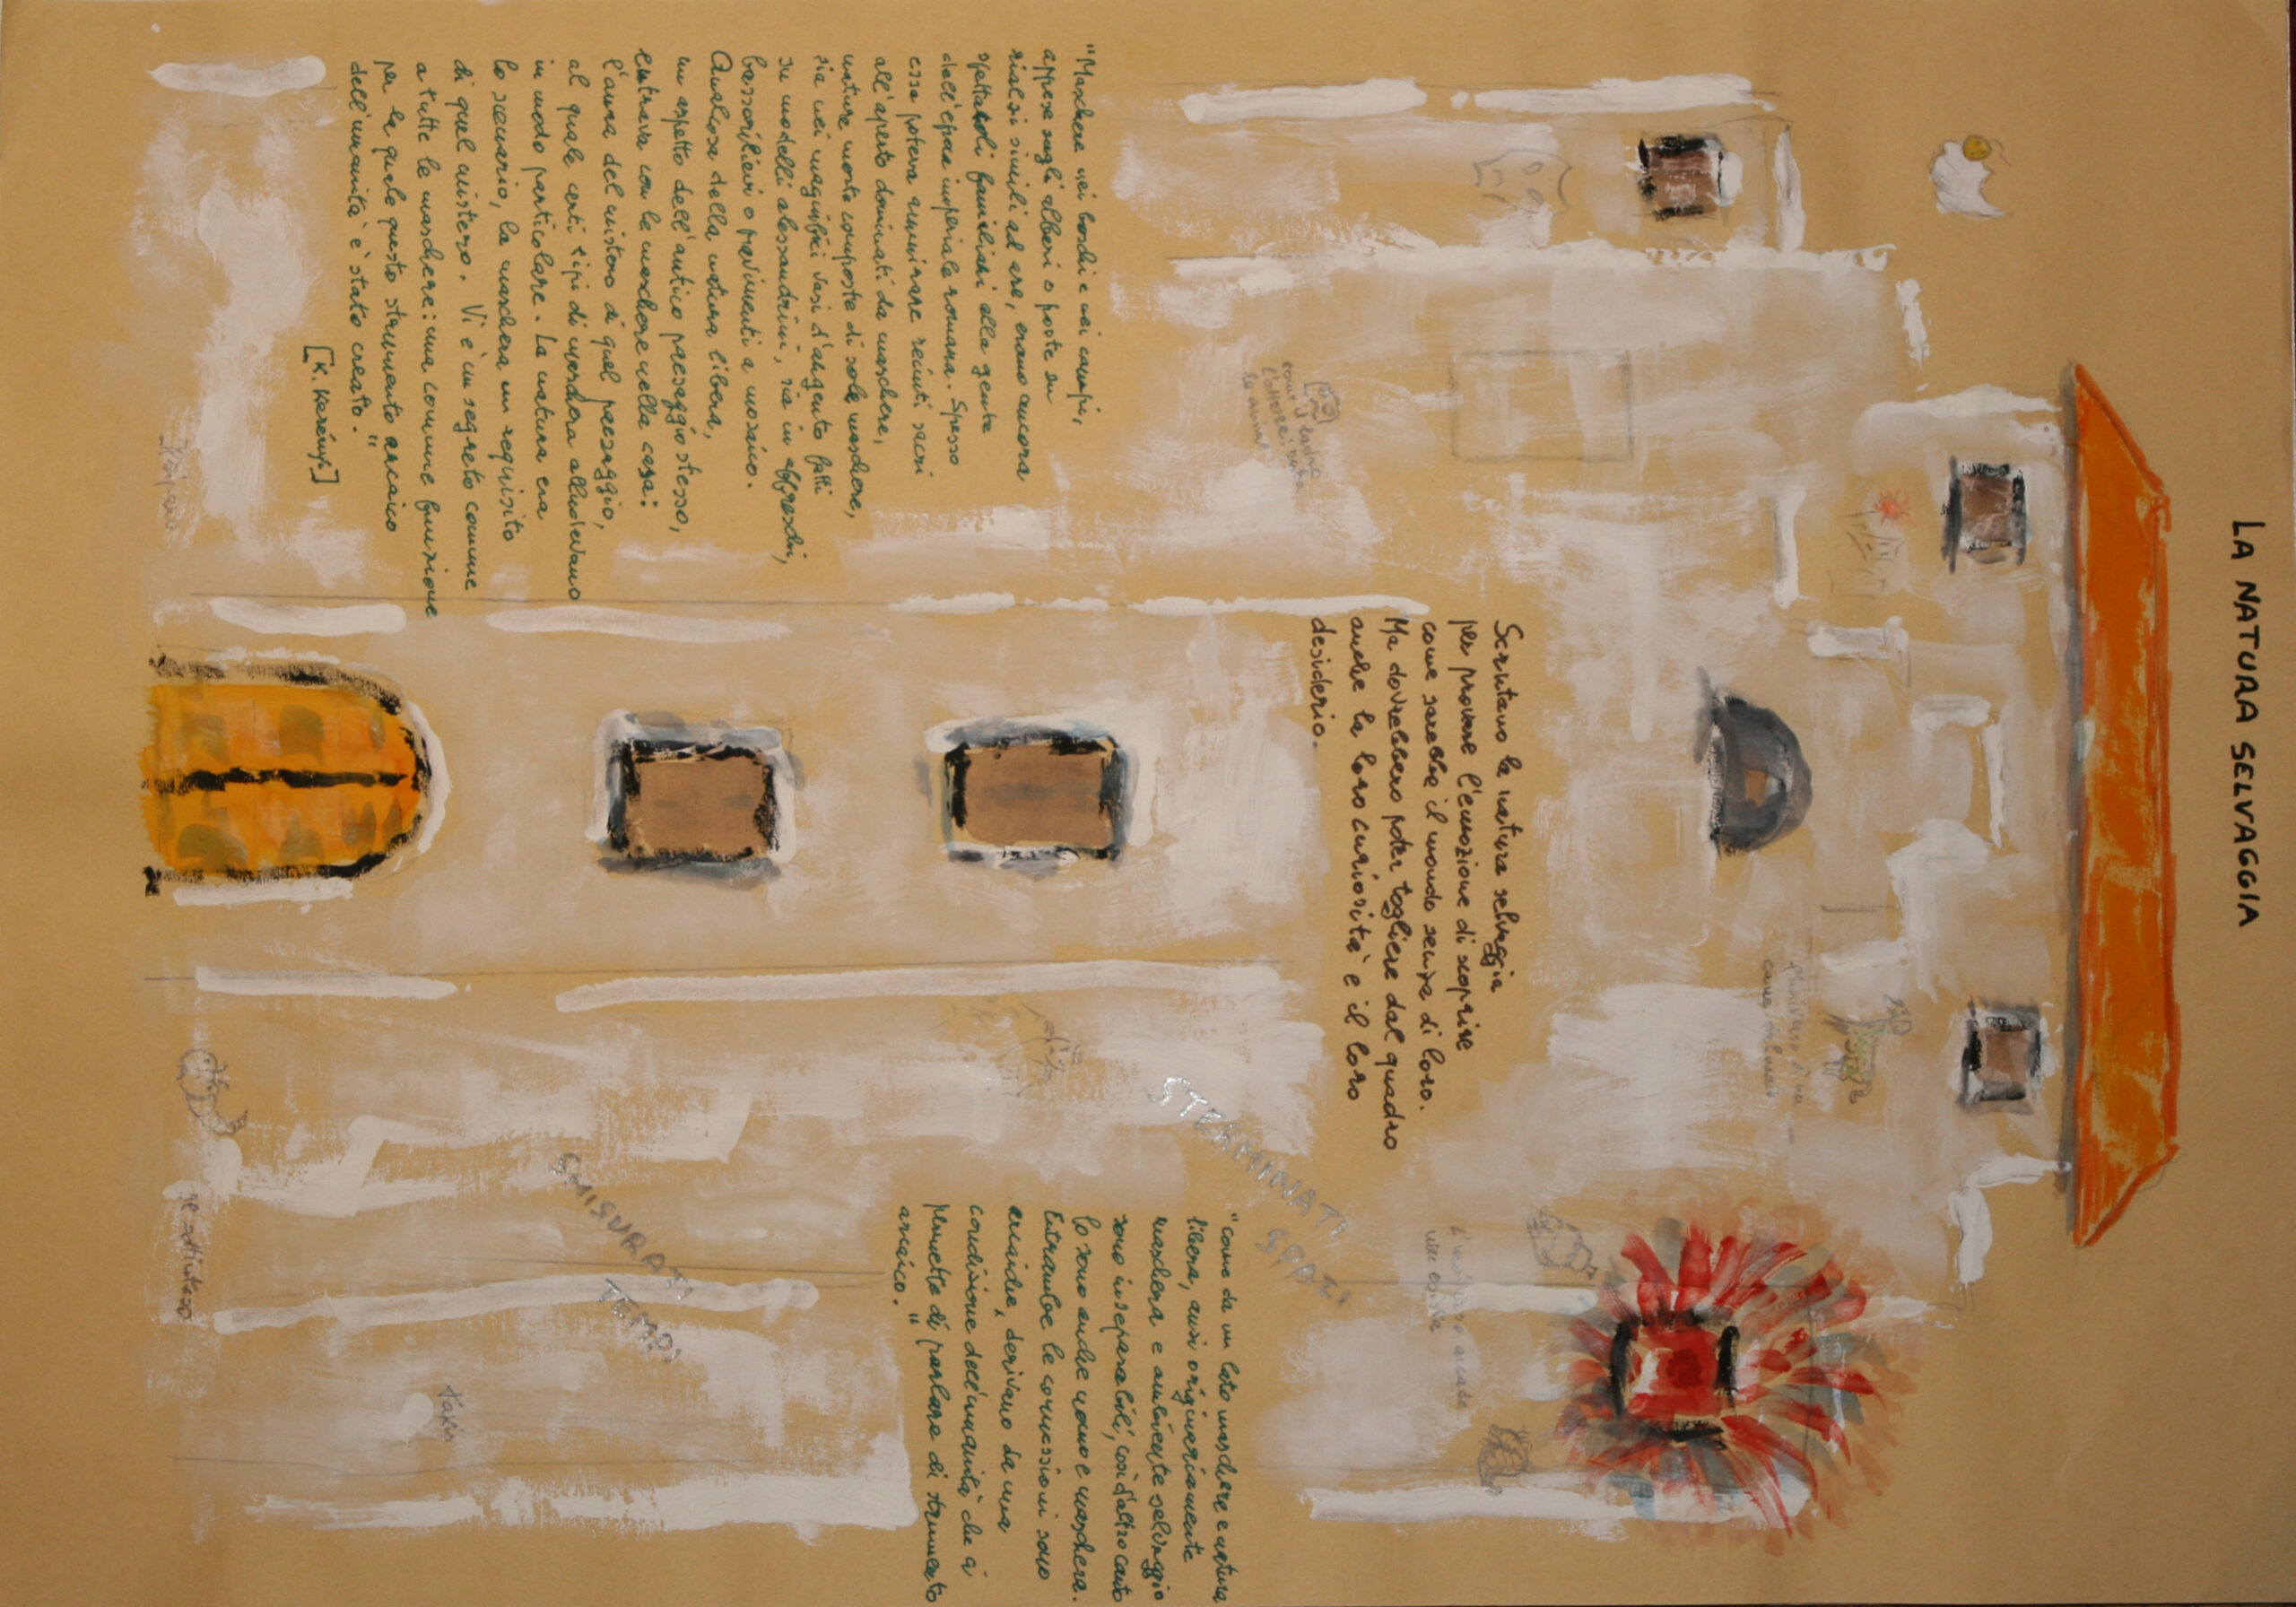 LA NATURA SELVAGGIA
"Maschere nei boschi e nei campi,
appese sugli alberi o poste su
rialzi simili ad are, erano ancora
spettacoli familiari alla gente
dell'epoca imperiale romana. Spesso
essa poteva ammirare recinti sacri
all'aperto dominati da maschere,
nature morte composte di sole maschere,
sia nei magnifici vasi d'argento fatti
su modelli alessandrini, sia in affreschi,
bassorilievi o pavimenti a mosaico.
Qualcosa della natura libera,
un aspetto dell'antico paesaggio stesso,
entrava con le maschere nella casa:
l'aura del mistero di quel paesaggio,
al quale certi tipi di maschera alludevano
in modo particolare. La natura era
lo scenario, la maschera un requisito
di quel mistero. Vi è un segreto comune
a tutte le maschere: una comune funzione
per la quale questo strumento arcaico
dell'umanità è stato creato."
[K. Kerényi]
Scrutano la natura selvaggia
per provare l'emozione di scoprire
come sarebbe il mondo senza di loro.
Ma dovrebbero poter togliere dal quadro
anche la loro curiosità e il loro
desiderio.
STERMINATI
SPAZI
SMISURATI
TEMPI
"come da un lato maschere e natura
libera, anzi originariamente
maschera e ambiente selvaggio
sono inseparabili, così d'altro canto
lo sono anche uomo e maschera.
Entrambe le connessioni sono
arcaiche, derivano da una
condizione dell'umanità che ci
permette di parlare di strumento
arcaico."
Il sottinteso
Taxis